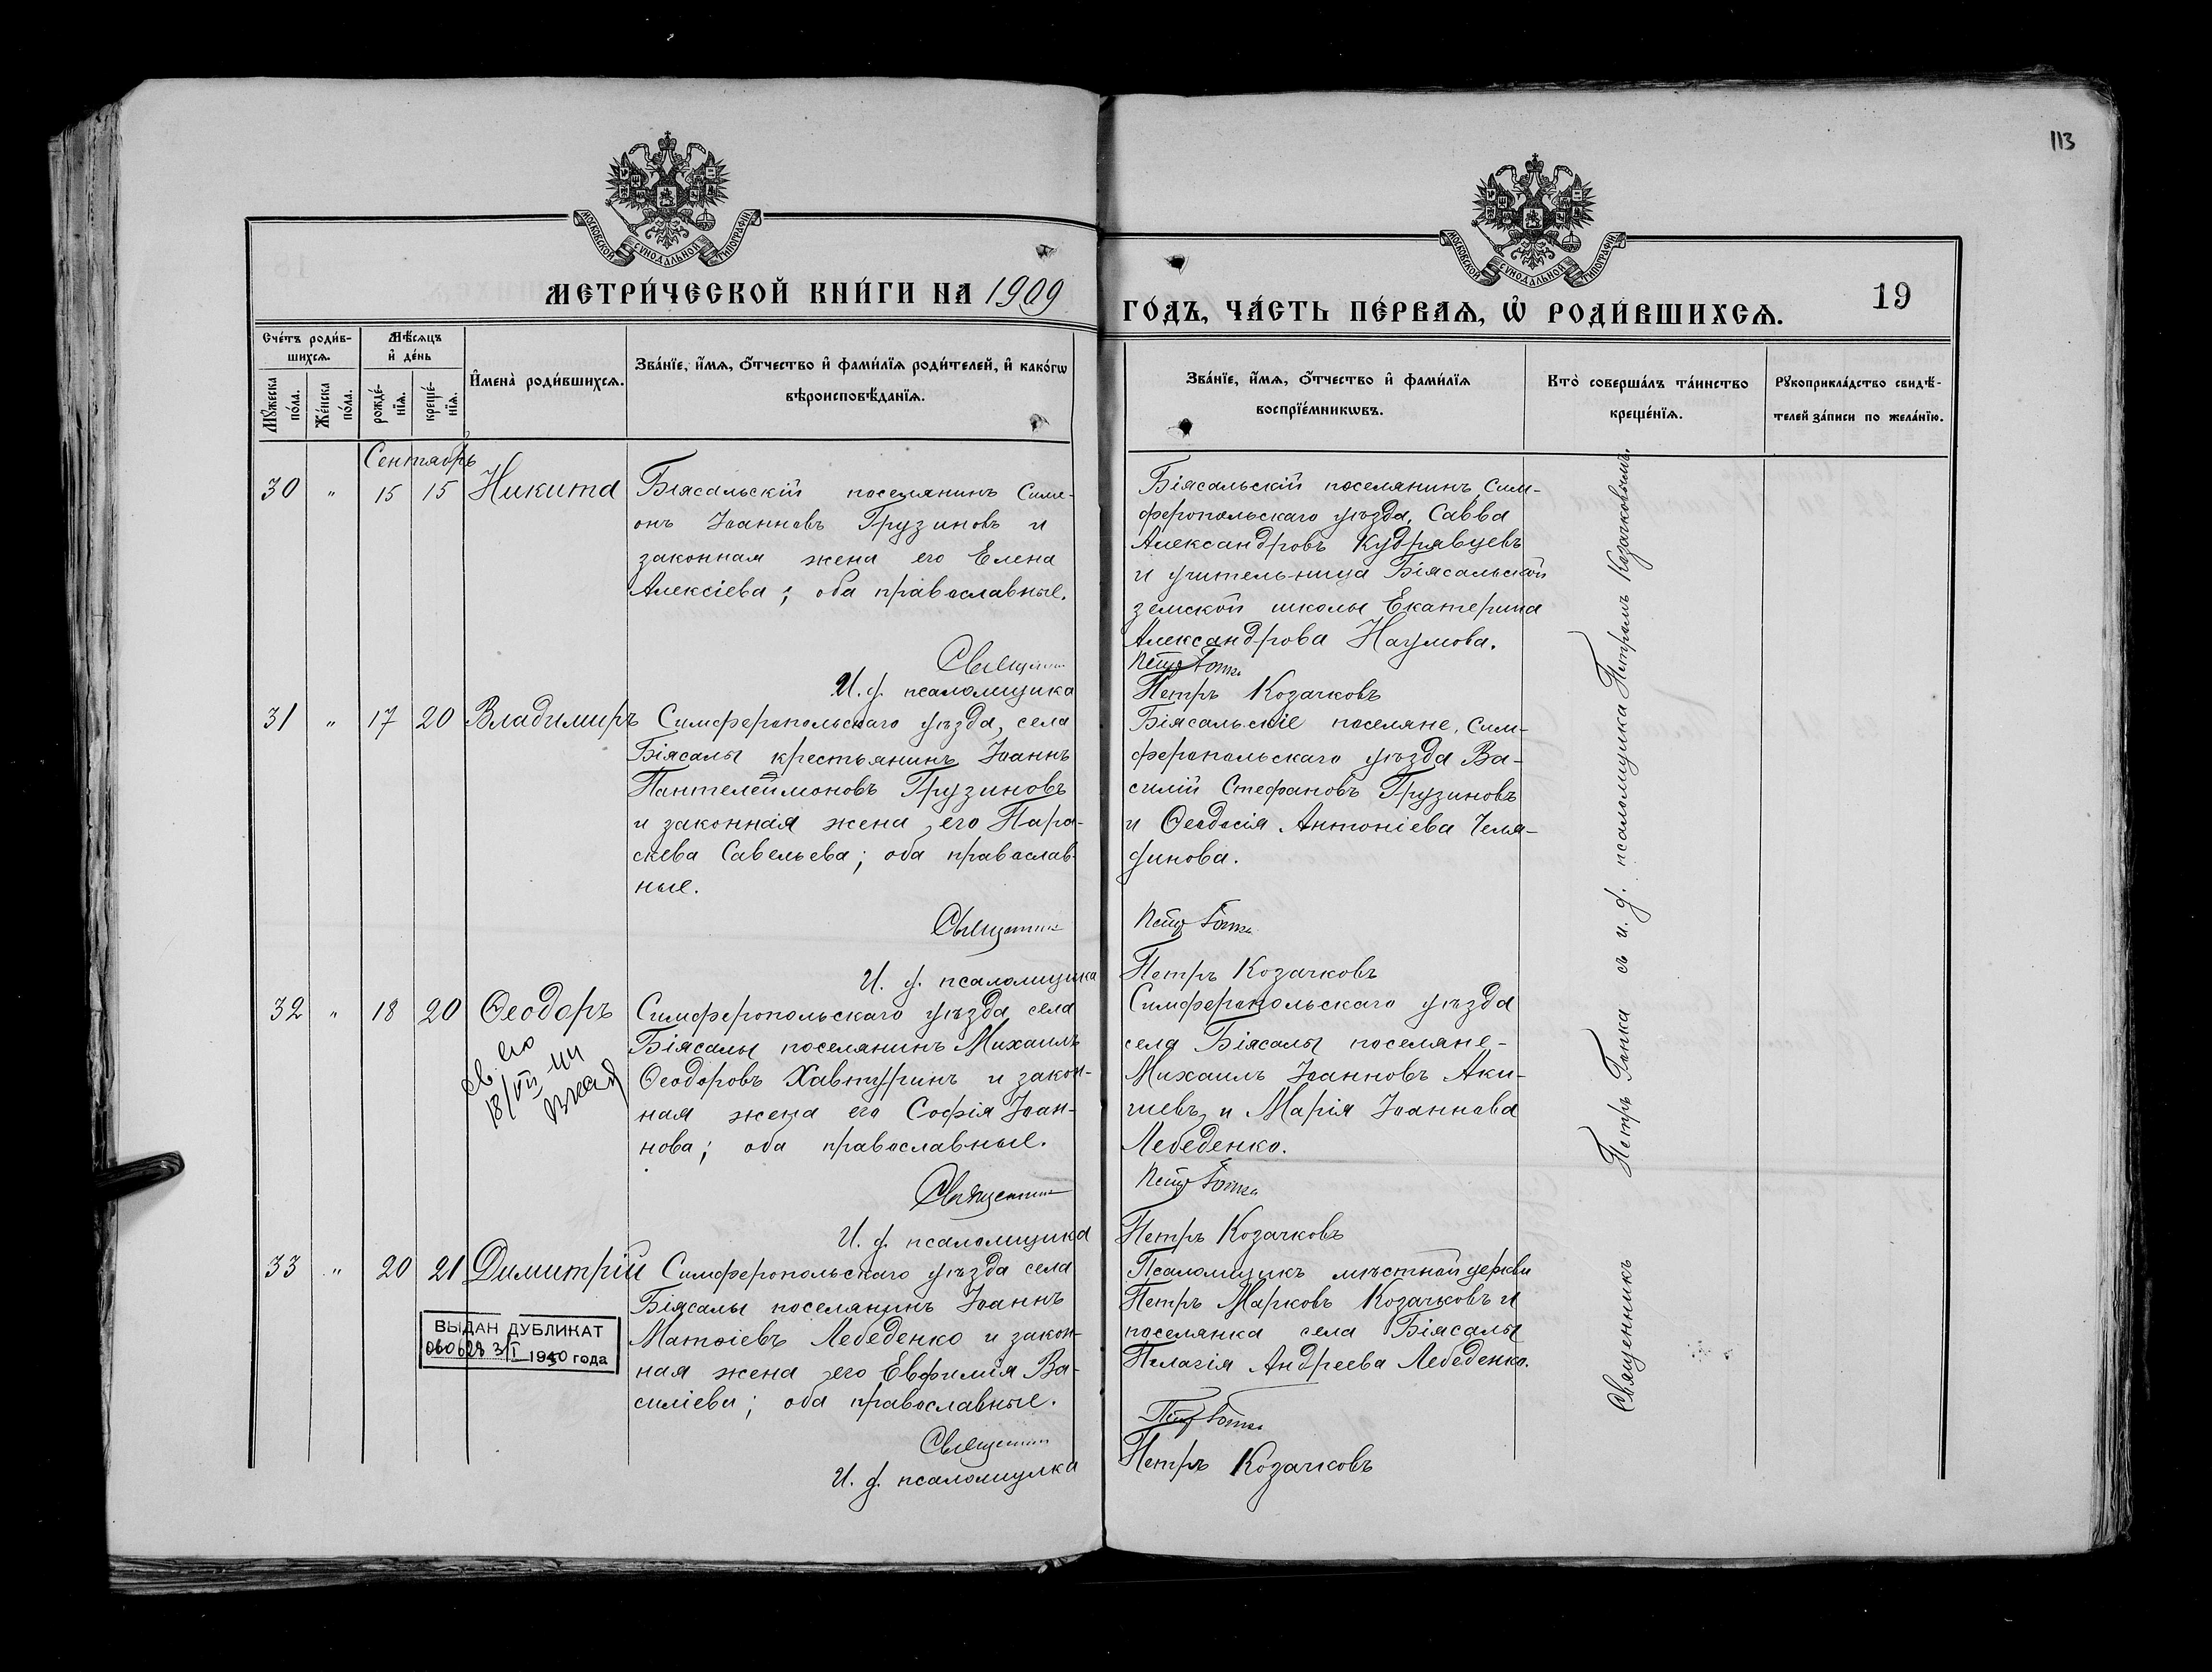 113
МОСКОВСКОЙ СѴНОДАЛЬНОЙ ТИПОГРАФІИ
МОСКОВСКОЙ СѴНОДАЛЬНОЙ ТИПОГРАФІИ
МЕТРИ́ЧЕСКОЙ КНИ́ГИ НА 1909
ГО́ДЪ, ЧА́СТЬ ПЕ́РВАѦ, Ѡ҆ РОДИ́ВШИХСѦ.
19
Сче́тъ роди́в-
шихсѧ.
Мꙋ́жеска по́ла.
Же́нска по́ла.
Мѣ́сѧцъ
и҆ де́нь
рожде́-
нїѧ.
креще́-
нїѧ.
И҆мена̀ роди́вшихсѧ.
Зва́нїе, и҆́мѧ, ѻ҆́тчество и҆ фами́лїѧ роди́телей, и҆ како́гѡ
вѣроисповѣ́данїѧ.
Зва́нїе, и҆́мѧ, ѻ҆́тчество и҆ фами́лїѧ
воспрїе́мникѡвъ.
Кто̀ соверша́лъ та́инство
креще́нїѧ.
Рꙋкоприкла́дство свидѣ́-
телей за́писи по жела́нїю.
Сентябрь
30 " 15 15 Никита
Біясальскій поселянинъ Симе-
онъ Іоанновъ Грузиновъ и
законная жена его Елена
Алексіева; оба православные.
Священник
И. д. псаломщика
Біясальскій поселянинъ, Сим-
феропольскаго уѣзда, Савва
Александровъ Кудрявцевъ
и учительница Біясальской
земской школы Екатерина
Александрова Наумова.
Петр Гопка
Петръ Козачковъ
31 " 17 20 Владимиръ
Симферопольскаго уѣзда, села
Біясалы крестьянинъ Іоаннъ
Пантелеимоновъ Грузиновъ
и законная жена его Пара-
скева Савельева; оба православ-
ные.
Священник
И. д. псаломщика
Біясальскіе поселяне, Сим-
феропольскаго уѣзда Ва-
силій Стефановъ Грузиновъ
и Ѳеодосія Антоніева Челя-
динова.
Петр Гопка
Петръ Козачковъ
32 " 18 20 Ѳеодоръ
Св. его
18/VII
Симферопольскаго уѣзда села
Біясалы поселянинъ Михаилъ
Ѳеодоровъ Хавпурринъ и закон-
ная жена его Софія Іоан-
нова; оба православные.
Священник
И. д. псаломщика
Симферопольскаго уѣзда
села Біясалы поселяне-
Михаилъ Іоанновъ Аки-
шевъ и Марія Іоаннова
Лебеденко.
Петр Гопка
Петръ Козачковъ
33 " 20 21 Димитрій
ВЫДАН ДУБЛИКАТ
060628 3/I 1950 года
Симферопольскаго уѣзда села
Біясалы поселянинъ Іоаннъ
Матѳіевъ Лебеденко и закон-
ная жена его Евфимія Ва-
силіева; оба православные.
Священник
И. д. псаломщика
Псаломщикъ мѣстной церкви
Петръ Марковъ Козачковъ и
поселянка села Біясалы
Пелагія Андреева Лебеденко.
Петр Гопка
Петръ Козачковъ
Священникъ Петръ Гопка съ и. д. псаломщика Петромъ Козачковымъ.